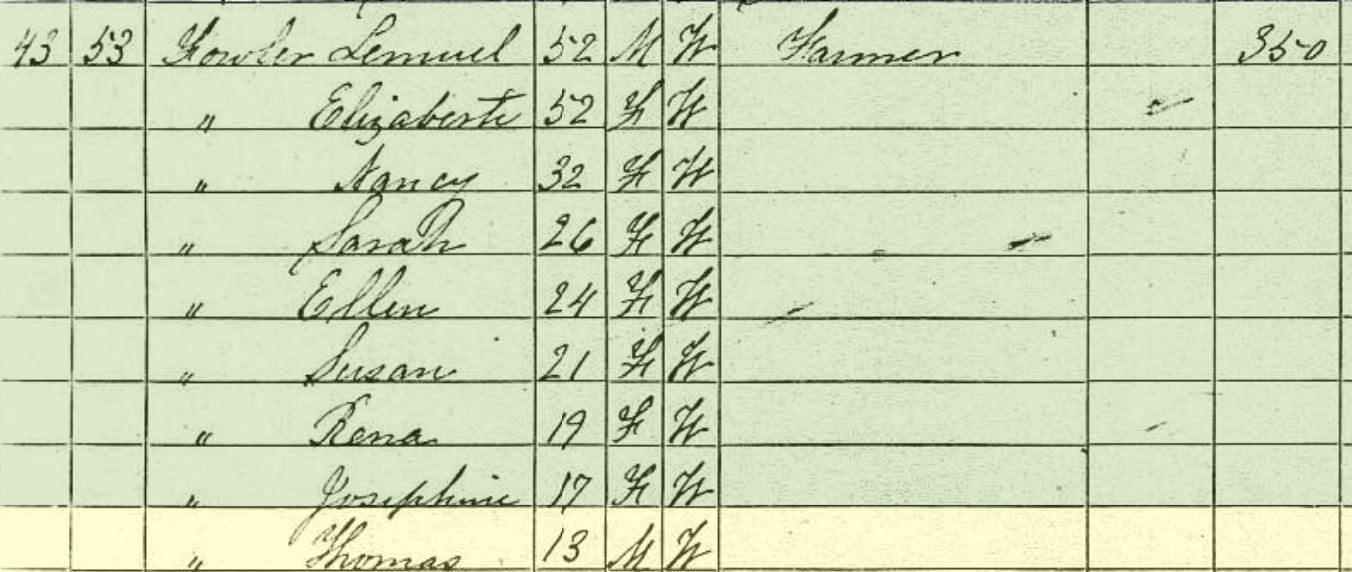 43 53 Fowler Lemuel 52 M W Farmer 350
" Elizabeth 52 F W
" Nancy 32 F W
" Sarah 26 F W
" Ellen 24 F W
" Susan 21 F W
" Rena 19 F W
" Josephine 17 F W
" Thomas 13 M W